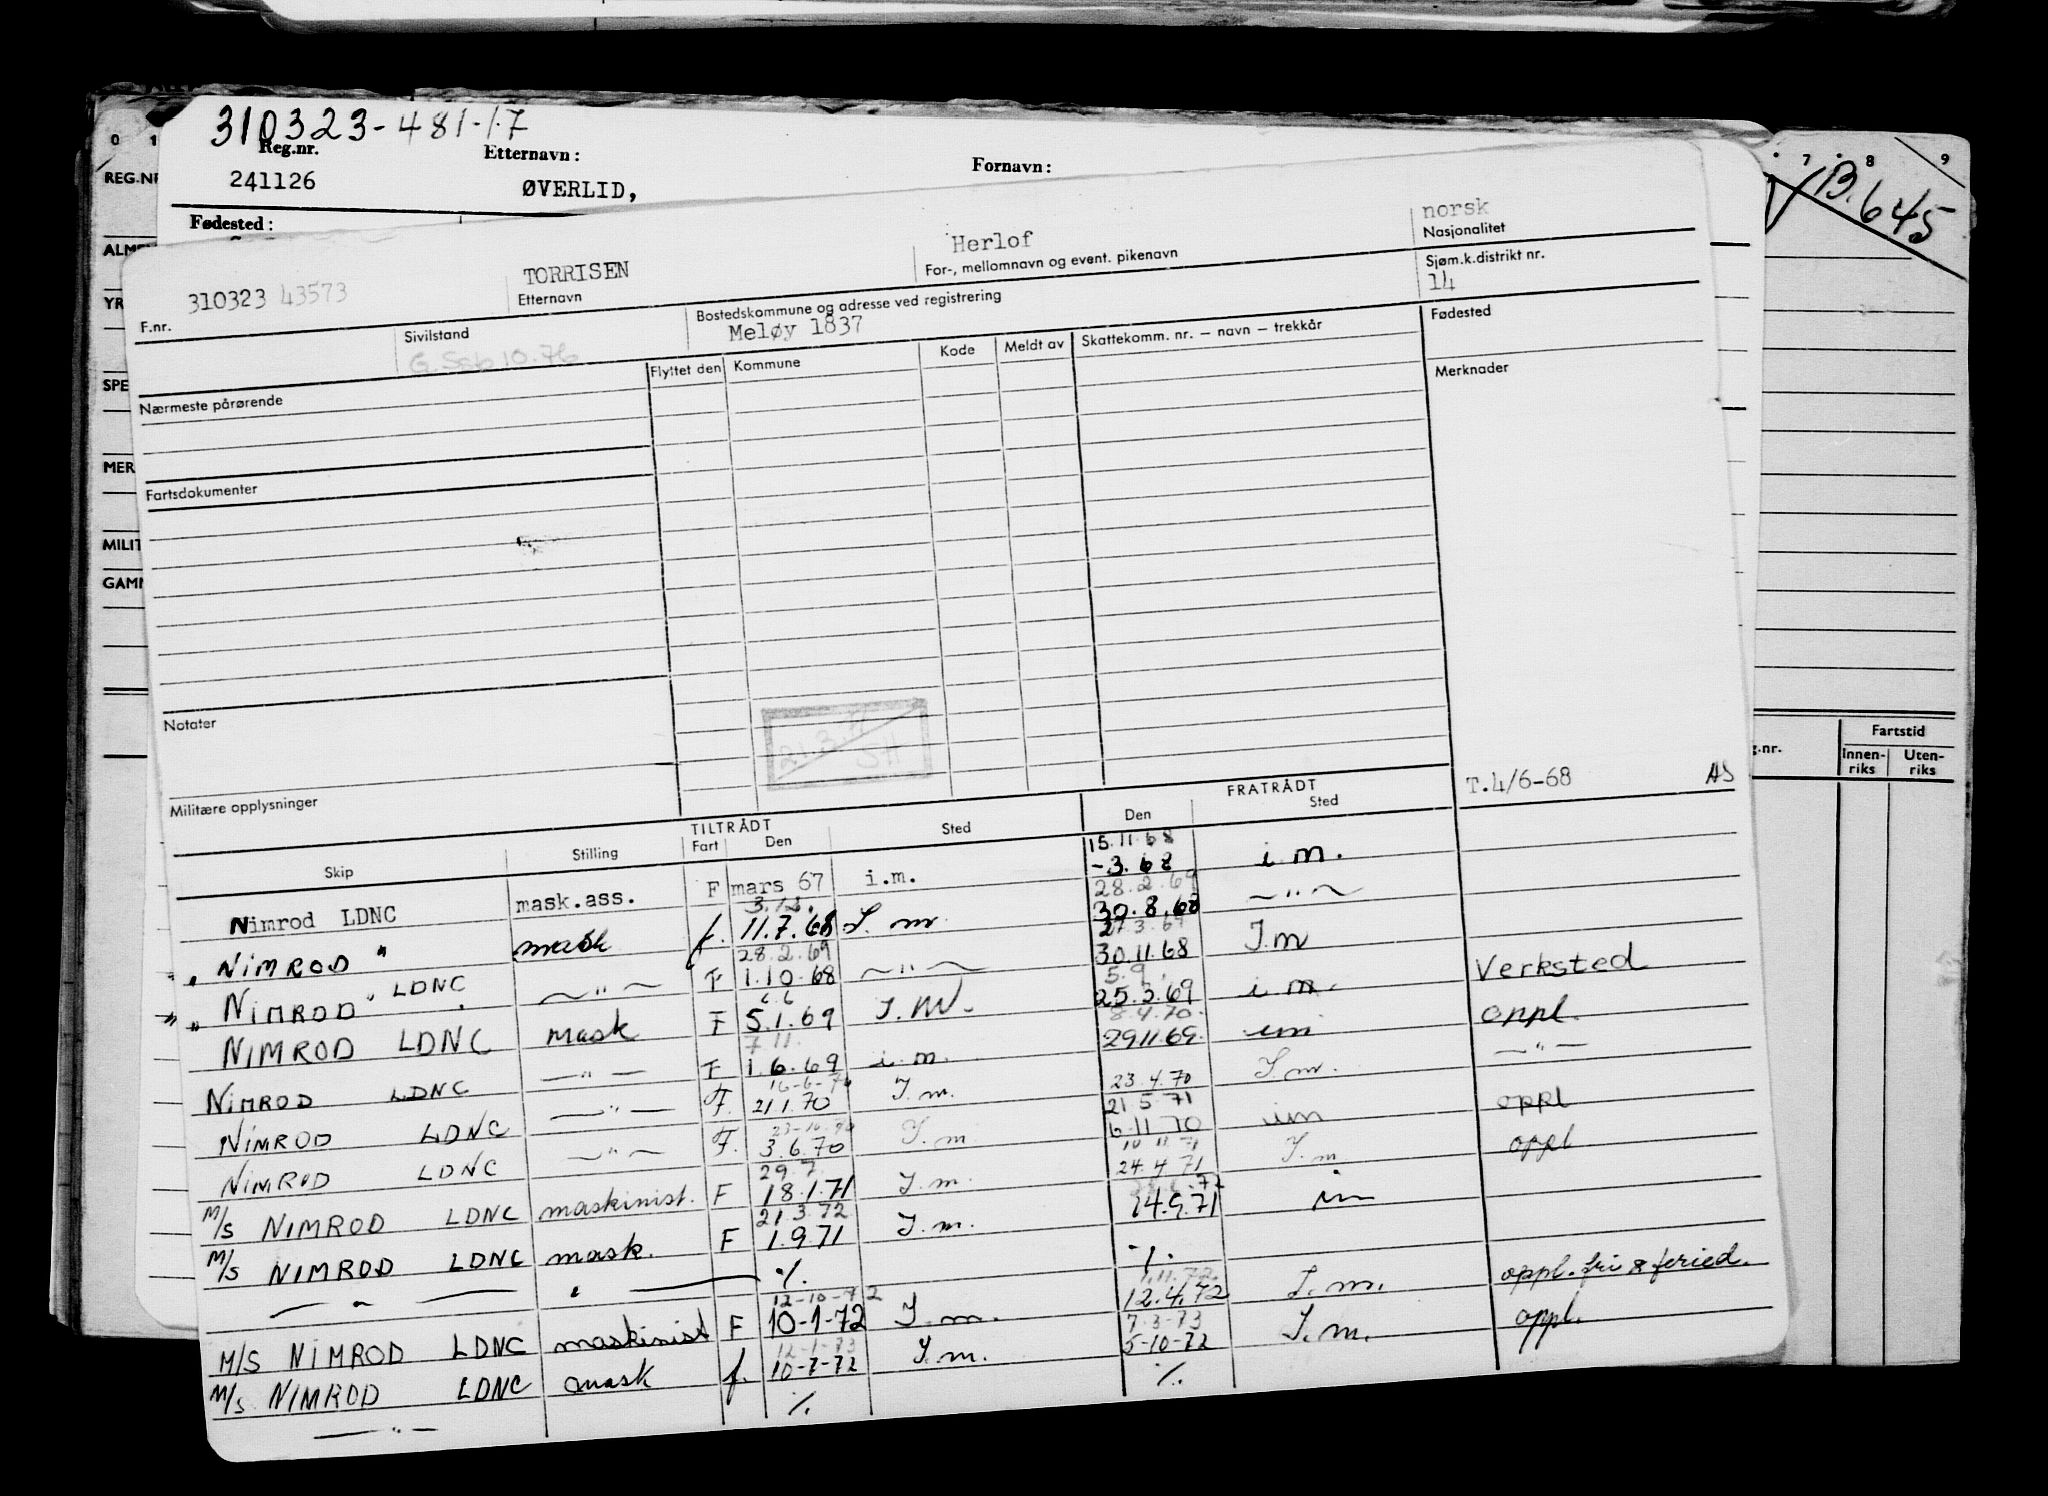 310323-481-17
Reg.nr. Etternavn: Fornavn:
241126 ØVERLID,
Fødested:
0 1 7 8 9
REG.NR
B.645
YR
SPE
MER
MILIT
GAM
g.nr. Fartstid
Innen-riks Uten-riks
310323 43573 TORRISEN Herlof norsk
F.nr. Etternavn For-, mellomnavn og event. pikenavn Nasjonalitet
Sivilstand Bostedskommune og adresse ved registrering Sjøm.k.distrikt nr.
Meløy 1837 14
Flyttet den Kommune Kode Meldt av Skattekomm. nr. – navn – trekkår Fødested
Nærmeste pårørende Merknader
Fartsdokumenter
Notater
SH
Militære opplysninger T.4/6-68 AS
TILTRÅDT FRATRÅDT
Skip Stilling Fart Den Sted Den Sted
15.11.68
Nimrod LDNC mask.ass. F mars 67 i.m. -3.68 i.m.
28.2.69
" NIMROD " mask f. 11.7.68 I.m 30.8.68 —"—
28.2.69
" NIMROD " LDNC —"— F 1.10.68 —"— 30.11.68 I.m
5.9.
NIMROD LDNC mask F 5.1.69 I.M. 25.3.69 i m. Verksted
7.11. 8.4.70.
NIMROD LDNC —"— F 1.6.69 i.m. 29.11.69. im oppl.
16-6-70 23.4.70
NIMROD LDNC —"— F. 21.1.70 I.m. 21.5.71 I.m. —"—
NIMROD LDNC —"— F. 3.6.70 I.m. 6.11.70 im oppl
29.7.
M/S NIMROD LDNC maskinist. F 18.1.71 I.m. 24.4.71 I.m oppl
21.3.72
M/S NIMROD LDNC mask. F 1.9.71 I.m. 14.9.71 im
—"— " ./. ./.
12-10-72 1.11.72.
M/S NIMROD LDNC maskinist F 10-1-72 I.m. 12.4.72 I.m. oppl. fri & feried.
12-1-73 7-3-73
M/S NIMROD LDNC mask f. 10-7-72 I.m. 5-10-72 I.m. oppl.
—"— ./. ./.